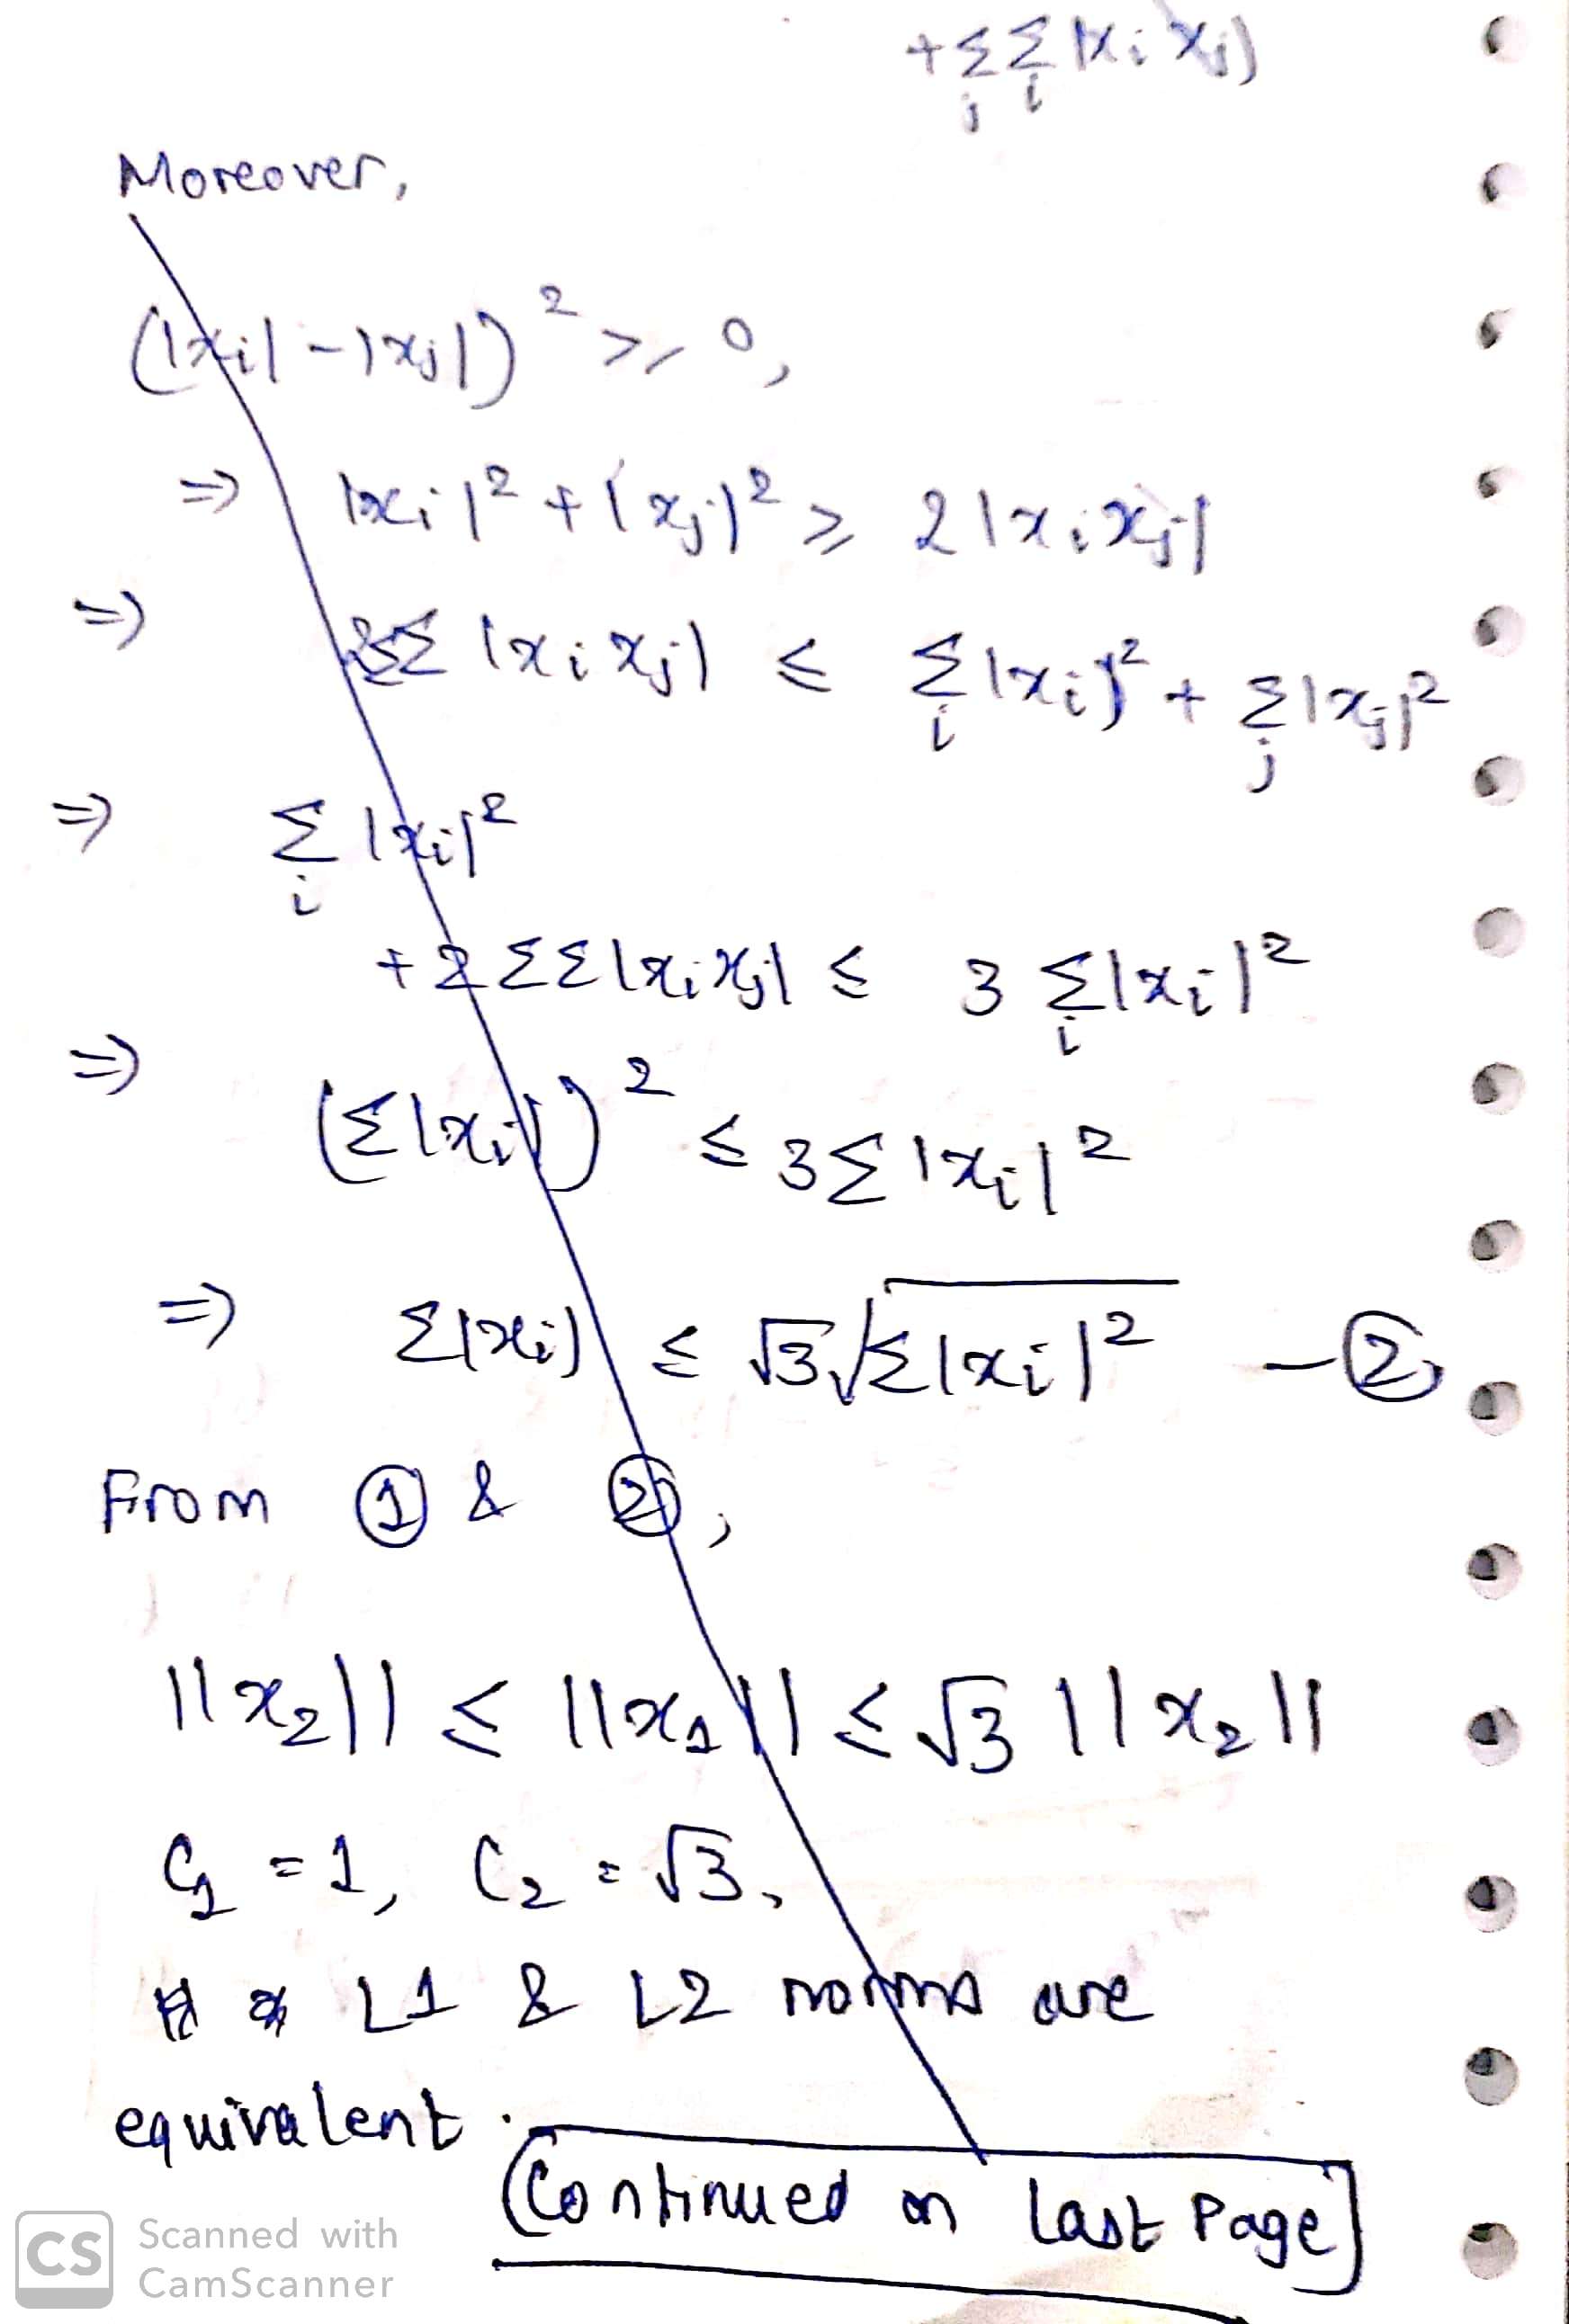 +ΣΣ|xi xj|
j i
Moreover,
(|xi|-|xj|)² ≥ 0,
⇒ |xi|² + |xj|² ≥ 2|xi xj|
⇒ ΣΣ |xi xj| ≤ Σ|xi|² + Σ|xj|²
i j
⇒ Σ |xi|²
i
+2ΣΣ|xi xj| ≤ 3 Σ|xi|²
i
⇒ (Σ|xi|)² ≤ 3Σ |xi|²
⇒ Σ|xi| ≤ √3 √Σ|xi|² - ②,
From ① & ②,
||x₂|| ≤ ||x₁|| ≤ √3 ||x₂||
C₁ = 1, C₂ = √3,
L1 & L2 norms are
equivalent.
(Continued on last Page]
CS Scanned with
CamScanner